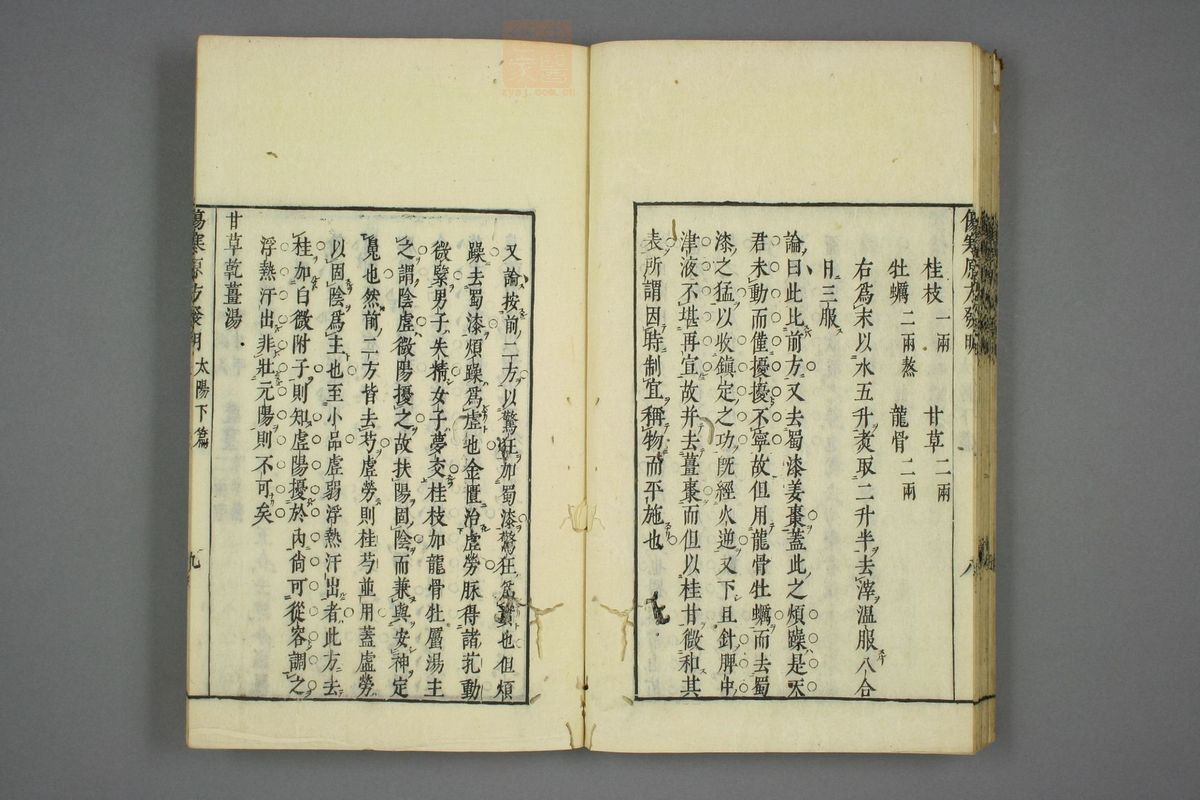 傷寒原方發明
八
桂枝一兩 甘草二兩
牡蠣二兩熬 龍骨二兩
右爲末以水五升煑取二升半去滓溫服八合
日三服
論曰此比前方又去蜀漆姜棗蓋此之煩躁是天
君未動而僅擾擾不寧故但用龍骨牡蠣而去蜀
漆之猛以收鎮定之功旣經火逆又下且針脾中
津液不堪再宣故并去薑棗而但以桂甘微和其
表所謂因時制宜稱物而平施也
又論按前二方以驚狂加蜀漆驚狂爲實也但煩
躁去蜀漆煩躁爲虛也金匱治虛勞脉得諸芤動
微緊男子失精女子夢交桂枝加龍骨牡蠣湯主
之謂陰虛微陽擾之故扶陽固陰而兼與安神定
䰟也然前二方皆去芍虛勞則桂芍並用蓋虛勞
以固陰爲主也至小品虛弱浮熱汗出者此方去
桂加白薇附子則知虛陽擾於內尙可從容調之
浮熱汗出非壯元陽則不可矣
甘草乾薑湯
傷寒原方發明
太陽下篇
九
zysj.com.cn